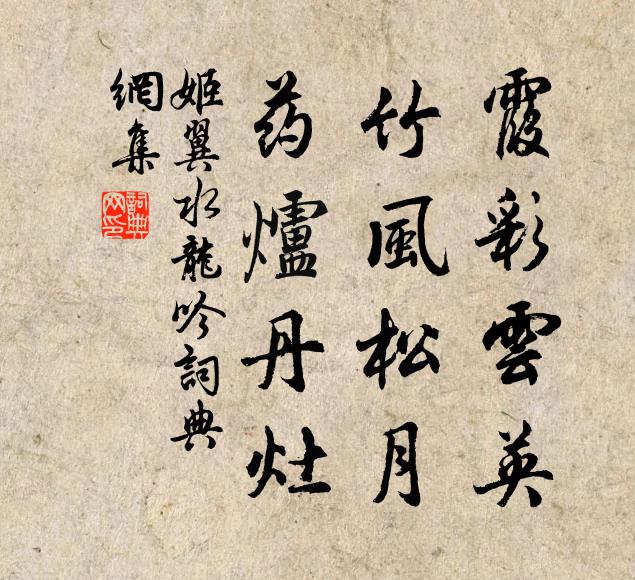 霞彩雲英
竹風松月
药爐丹灶
姬翼水龍吟詞典
網集
詞典
网印